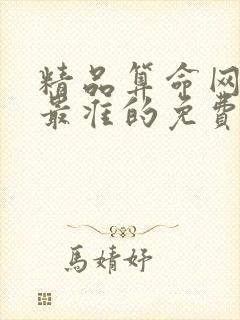 精品算命网
最准的免费
馬婧妤